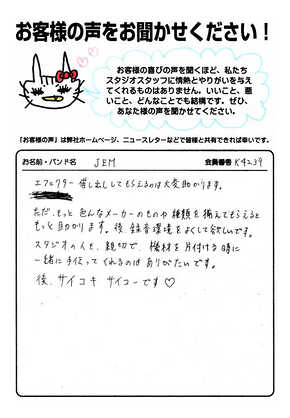 お客様の声をお聞かせください！
お客様の喜びの声を聞くほど、私たち
スタジオスタッフに情熱とやりがいを与え
てくれるものはありません。いいこと、悪
いこと、どんなことでも結構です。ぜひ、
あなた様の声を聞かせてください。
「お客様の声」は弊社ホームページ、ニュースレターなどで皆様と共有できれば幸いです。
お名前・バンド名 JEM 会員番号 K4239
エフェクター 貸し出ししてもらえるのは大変助かります。
ただ、もっと色んなメーカーのものや種類を揃えてもらえると
もっと助かります。後、録音環境をよくして欲しいです。
スタジオの人も、親切で、機材を片付ける時に
一緒に手伝ってくれるのはありがたいです。
後、サイコキ サイコーです♡